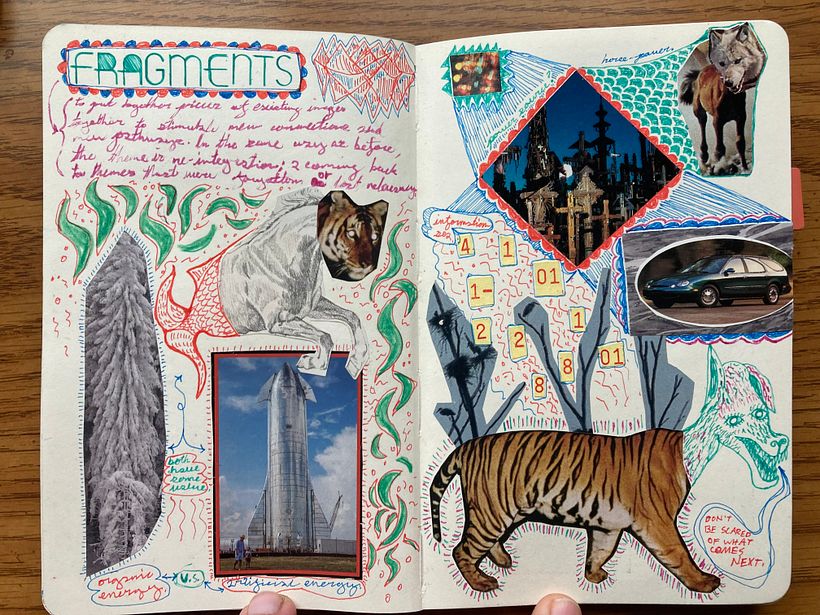 FRAGMENTS
to put together pieces of existing images
together to stimulate new connections and
new pathways. In the same way as before,
the theme is re-integration; 2 coming back
to themes that were forgotten or lost relevancy
both
have
some
value
organic
energy.
V.S
artificial energy.
horse-power
information
4 1 01
1- 1
2 2
8 8 01
DON'T
BE SCARED
OF WHAT
COMES
NEXT.